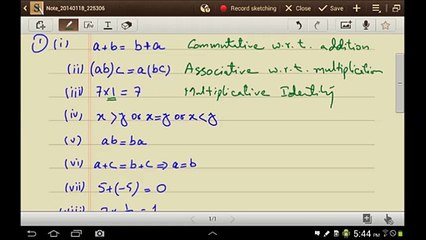 Note_20140118_225306
Record sketching
① (i) a+b = b+a Commutative w.r.t. addition
(ii) (ab)c = a(bc) Associative w.r.t. multiplication
(iii) 7×1 = 7 Multiplicative Identity
(iv) x > y or x = y or x < y
(v) ab = ba
(vi) a+c = b+c ⇒ a = b
(vii) 5+(-5) = 0
1/1
5:44 PM